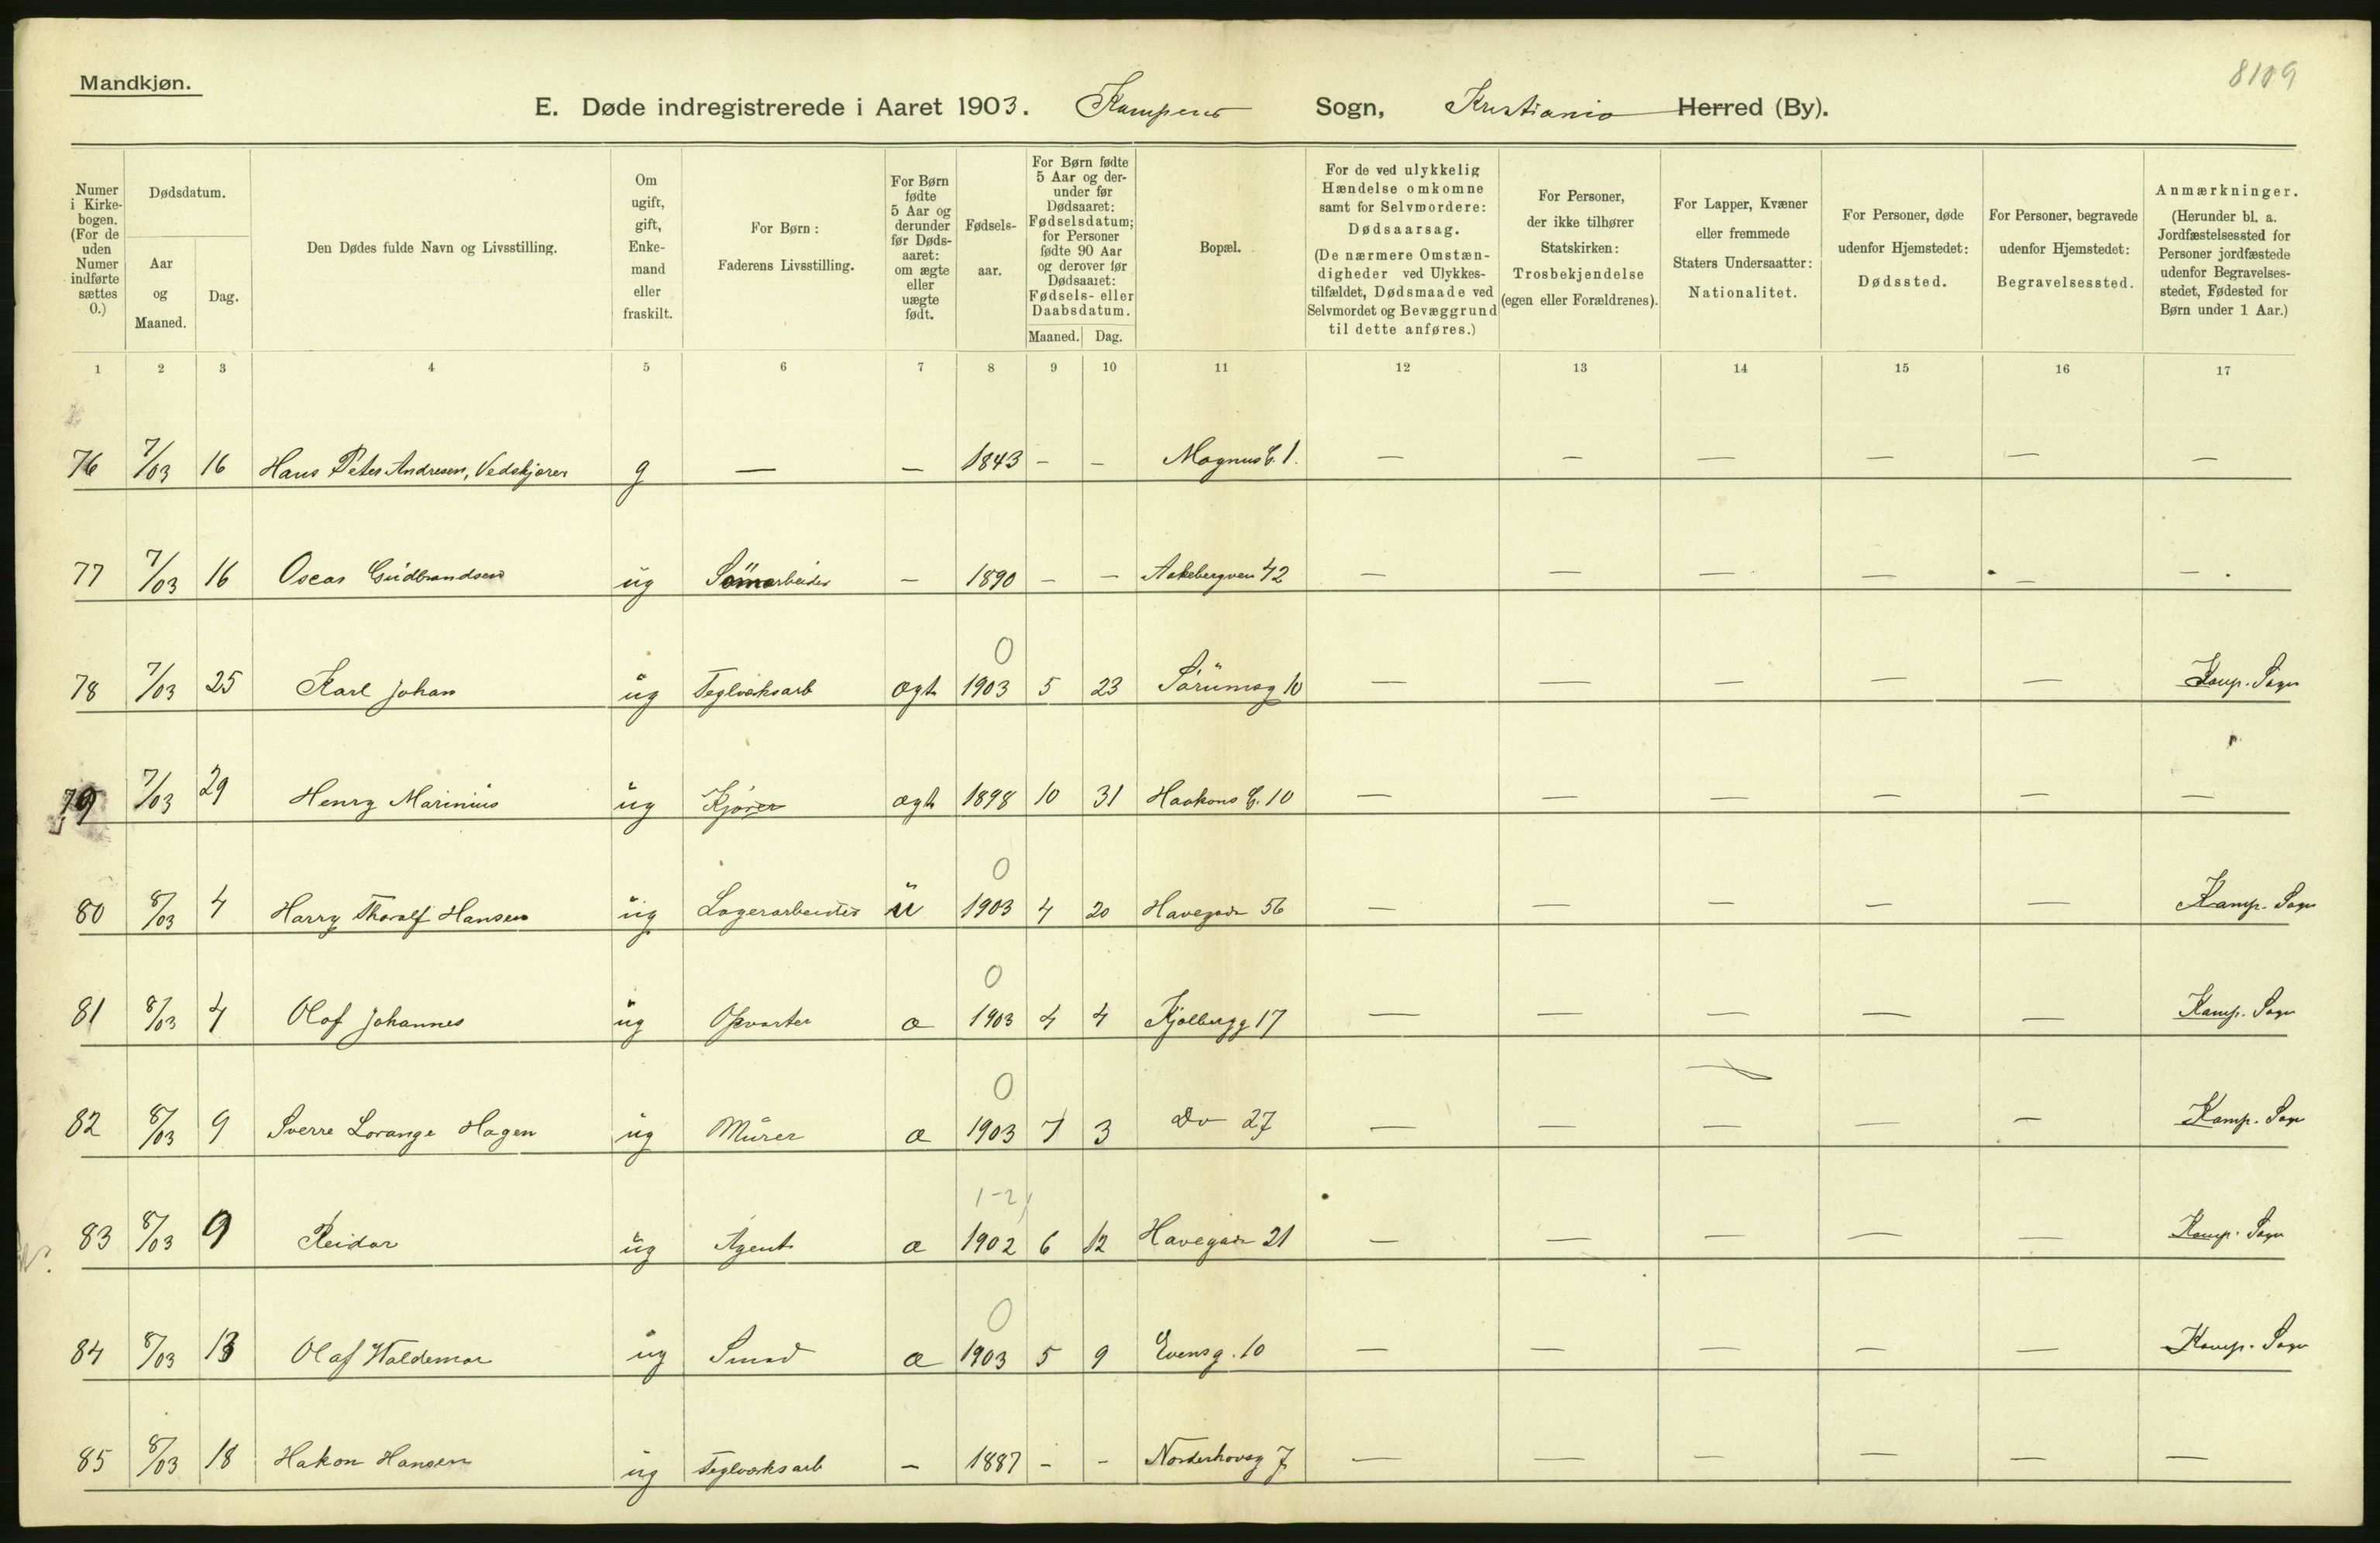 Mandkjøn.
8109
E. Døde indregistrerede i Aaret 1903. Kampens Sogn, Kristiania Herred (By).
Numer i Kirkebogen. (For de uden Numer indførte sættes 0.)
Dødsdatum.
Aar og Maaned.
Dag.
Den Dødes fulde Navn og Livsstilling.
Om ugift, gift, Enkemand eller fraskilt.
For Børn: Faderens Livsstilling.
For Børn fødte 5 Aar og derunder før Dødsaaret: om ægte eller uægte født.
Fødselsaar.
For Børn fødte 5 Aar og derunder før Dødsaaret: Fødselsdatum; for Personer fødte 90 Aar og derover før Dødsaaret: Fødsels- eller Daabsdatum.
Maaned. Dag.
Bopæl.
For de ved ulykkelig Hændelse omkomne samt for Selvmordere: Dødsaarsag. (De nærmere Omstændigheder ved Ulykkestilfældet, Dødsmaade ved Selvmordet og Bevæggrund til dette anføres.)
For Personer, der ikke tilhører Statskirken: Trosbekjendelse (egen eller Forældrenes).
For Lapper, Kvæner eller fremmede Staters Undersaatter: Nationalitet.
For Personer, døde udenfor Hjemstedet: Dødssted.
For Personer, begravede udenfor Hjemstedet: Begravelsessted.
Anmærkninger. (Herunder bl. a. Jordfæstelsessted for Personer jordfæstede udenfor Begravelsesstedet, Fødested for Børn under 1 Aar.)
1 2 3 4 5 6 7 8 9 10 11 12 13 14 15 16 17
76 7/03 16 Hans Peter Andresen, Vedskjærer g — — 1843 - - Magnus G. 1. — — — — — —
77 7/03 16 Oscar Gudbrandsen ug Sömarbeider — 1890 - - Aakebergveien 42 — — — — — —
0
78 7/03 25 Karl Johan ug Teglværksarb ægt 1903 5 23 Sörumsg 10 — — — — — Kamp. Sogn
79 7/03 29 Henry Marinius ug Kjører ægt 1898 10 31 Haakons G. 10 — — — — — —
0
80 8/03 4 Harry Thoralf Hansen ug Lagerarbeider u 1903 4 20 Havegade 56 — — — — — Kamp. Sogn
0
81 8/03 4 Olaf Johannes ug Opvarter æ 1903 4 4 Kjølbergg 17 — — — — — Kamp. Sogn
0
82 8/03 9 Sverre Lorange Hagen ug Murer æ 1903 7 3 Do 27 — — — — — Kamp. Sogn
1-2
83 8/03 9 Reidar ug Agent æ 1902 6 12 Havegade 21 — — — — — Kamp. Sogn
0
84 8/03 13 Olaf Waldemar ug Smed æ 1903 5 9 Evensg. 10 — — — — — Kamp. Sogn
85 8/03 18 Hakon Hansen ug Teglværksarb — 1887 - - Norderhovsg 7 — — — — — —